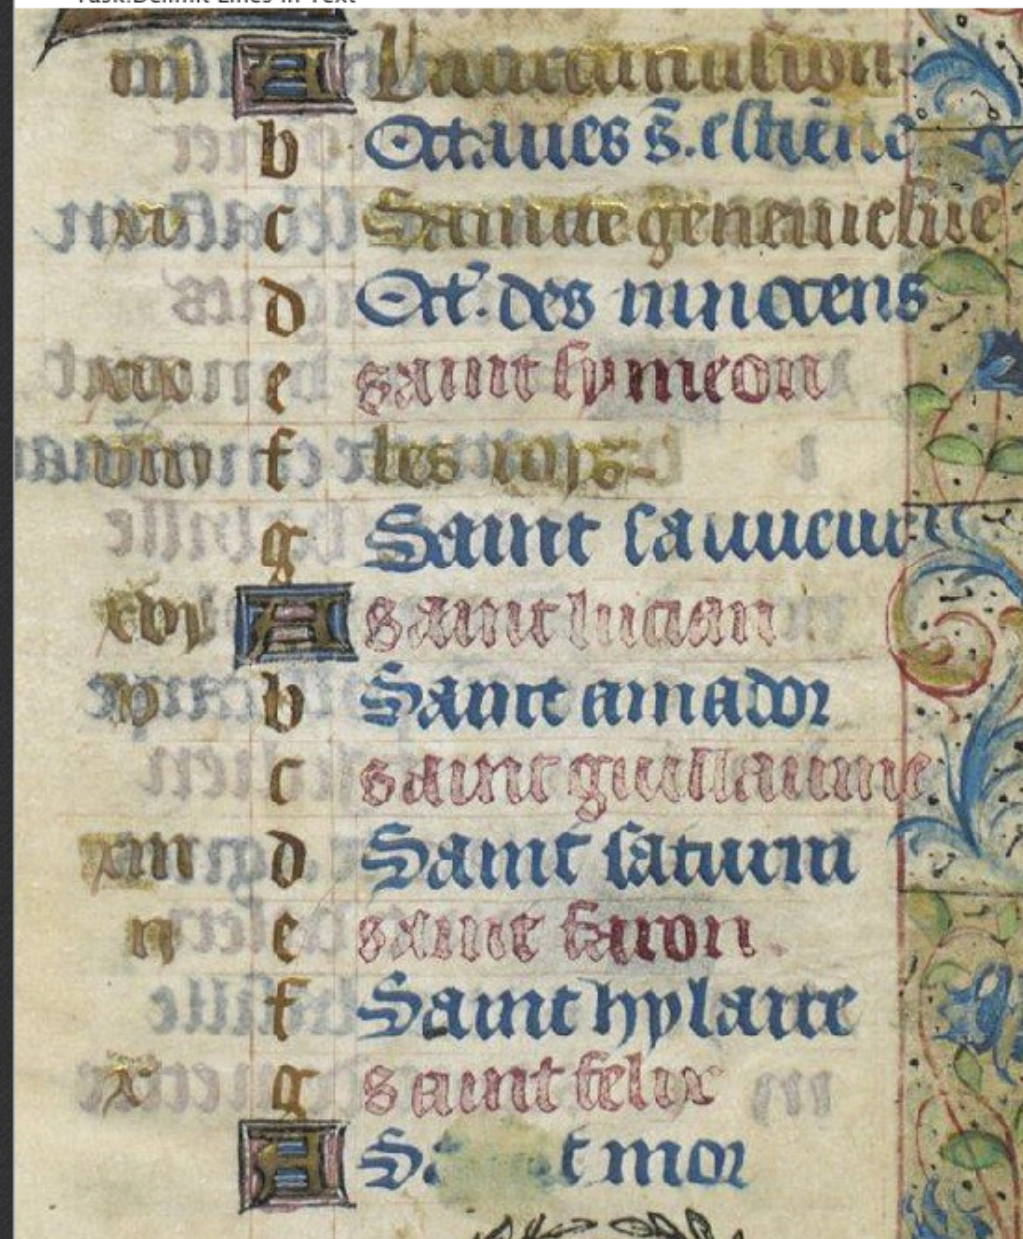 Task:Delimit Lines in Text
iii A La circuncision
b Octaues s̄. estiēne
xi c Sainte geneuiefue
d Oct̄. des innocens
xix e saint symeon
viii f les rois
g Saint sauueur
xvi A saint lucian
v b Saint amador
c saint guillaume
xiii d Saint saturni
ii e saint fauon.
f Saint hylaire
x g saint felix
A Sa t mor